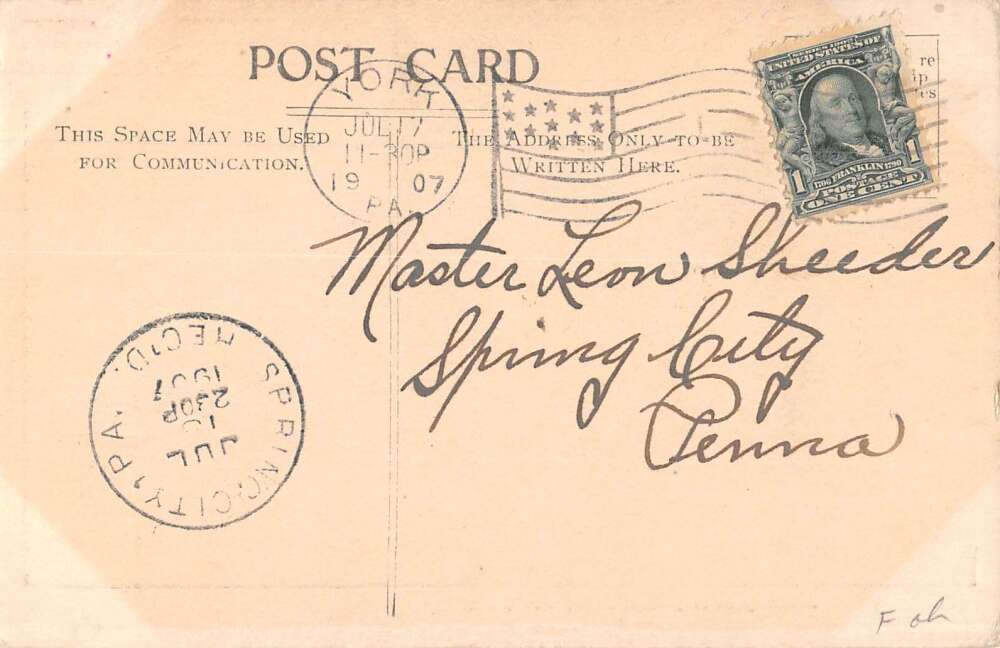 POST CARD
THIS SPACE MAY BE USED
FOR COMMUNICATION.
THE ADDRESS ONLY TO BE
WRITTEN HERE.
YORK
JUL 17
11-30P
19 07
PA.
SERIES 1902
UNITED STATES OF
AMERICA
1706 FRANKLIN 1790
1 POSTAGE 1
ONE CENT
re
ip
es
Master Leon Sheeder
Spring City
Penna
SPRING CITY, PA.
JUL
230P
1907
REC'D.
F oh